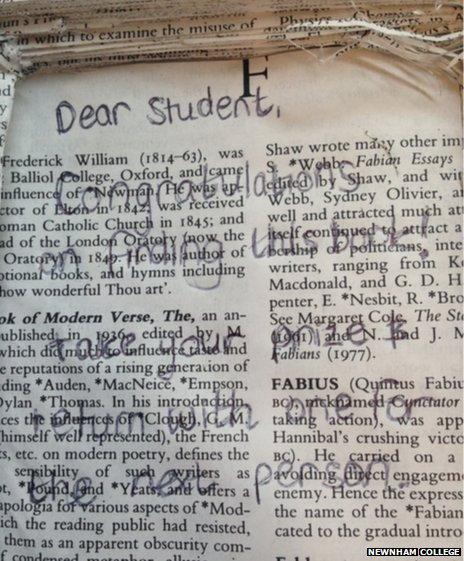 in which to examine the misuse of
F
Dear Student,
Congratulations
on finding this book!
take your prize &
return with one for
the next person.
Frederick William (1814–63), was
Balliol College, Oxford, and came
influence of *Newman. He was
ctor of Elton in 1842, was received
oman Catholic Church in 1845; and
ad of the London Oratory (now the
Oratory) in 1849. He was author of
otional books, and hymns including
how wonderful Thou art'.
ok of Modern Verse, The, an an-
ublished in 1936, edited by M.
which did much to influence taste and
e reputations of a rising generation of
ding *Auden, *MacNeice, *Empson,
Dylan *Thomas. In his introduc
ces the influences of (Clough), G. M.
(himself unrepresented), the French
ts, etc. on modern poetry, defines the
sensibility of such writers as
ot, *Pound, and *Yeats, and offers a
apologia for various aspects of *Mod-
ich the reading public had resisted,
them as an apparent obscurity com-
f condensed metaphor
Shaw wrote many other im
S. *Webb, Fabian Essays
edited by Shaw, and wit
Webb, Sydney Olivier, a
well and attracted much att
itself continued to attract a
bership of politicians, inte
writers, ranging from Ke
Macdonald, and G. D. H
penter, E. *Nesbit, R. *Bro
See Margaret Cole, The Sto
(1961) and N. and J. M
Fabians (1977).
FABIUS (Quintus Fabiu
BC), nicknamed Cunctator
taking action), was app
Hannibal's crushing victo
BC). He carried on a
avoiding direct engageme
enemy. Hence the express
the name of the *Fabian
cated to the gradual intro
NEWNHAM COLLEGE